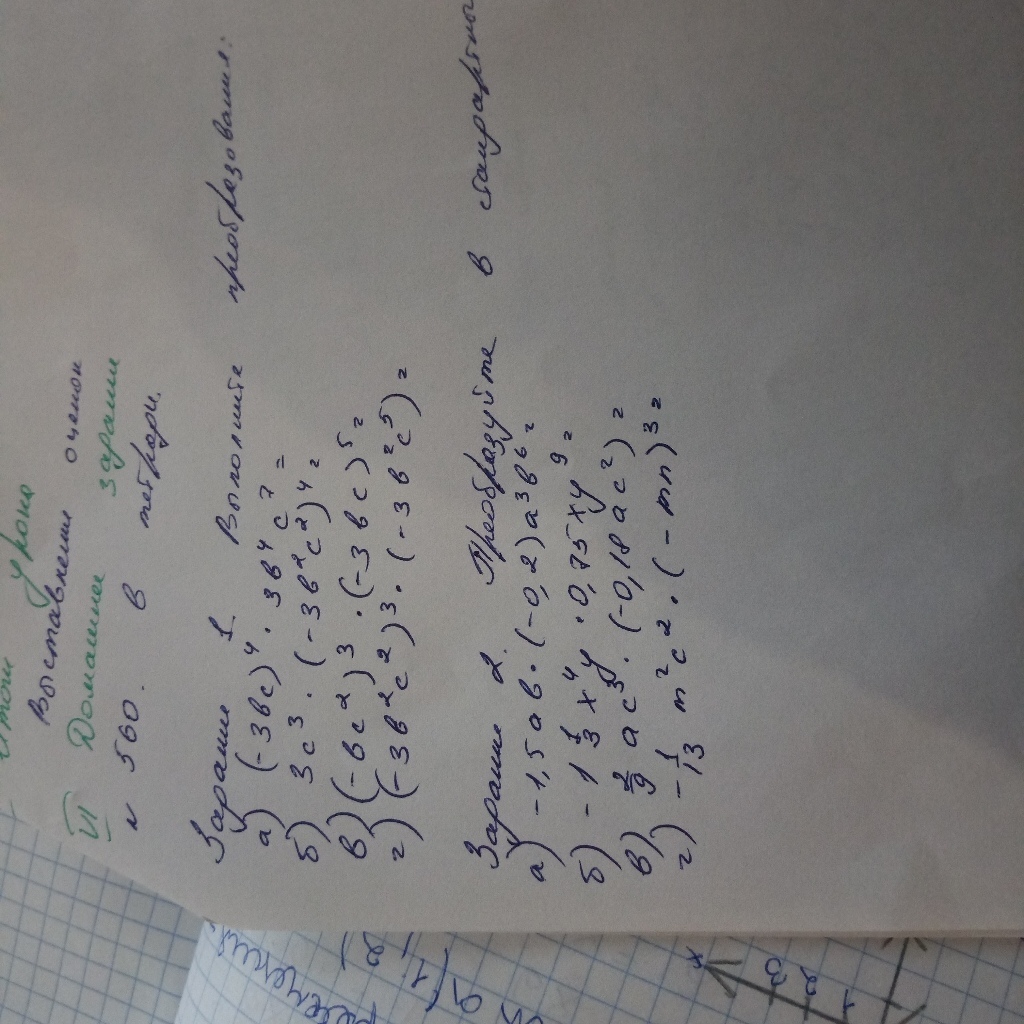 Итоги урока
Выставление оценок
VI Домашнее задание
№ 560. в тетради.
Задание 1 Выполните преобразования:
а) (-3bc)⁴ · 3b⁴c⁷ =
б) 3c³ · (-3b²c²)⁴ =
в) (-bc²)³ · (-3bc)⁵ =
г) (-3b²c²)³ · (-3b²c⁵) =
Задание 2. Преобразуйте в стандартны
а) -1,5ab · (-0,2)a³b⁶ =
б) -1 1/3 x⁴y · 0,75xy⁹ =
в) 2/9 ac³ · (-0,18ac²) =
г) -1/13 m²c² · (-mn)³ =
решения
(1; 2)
x
3
2
1